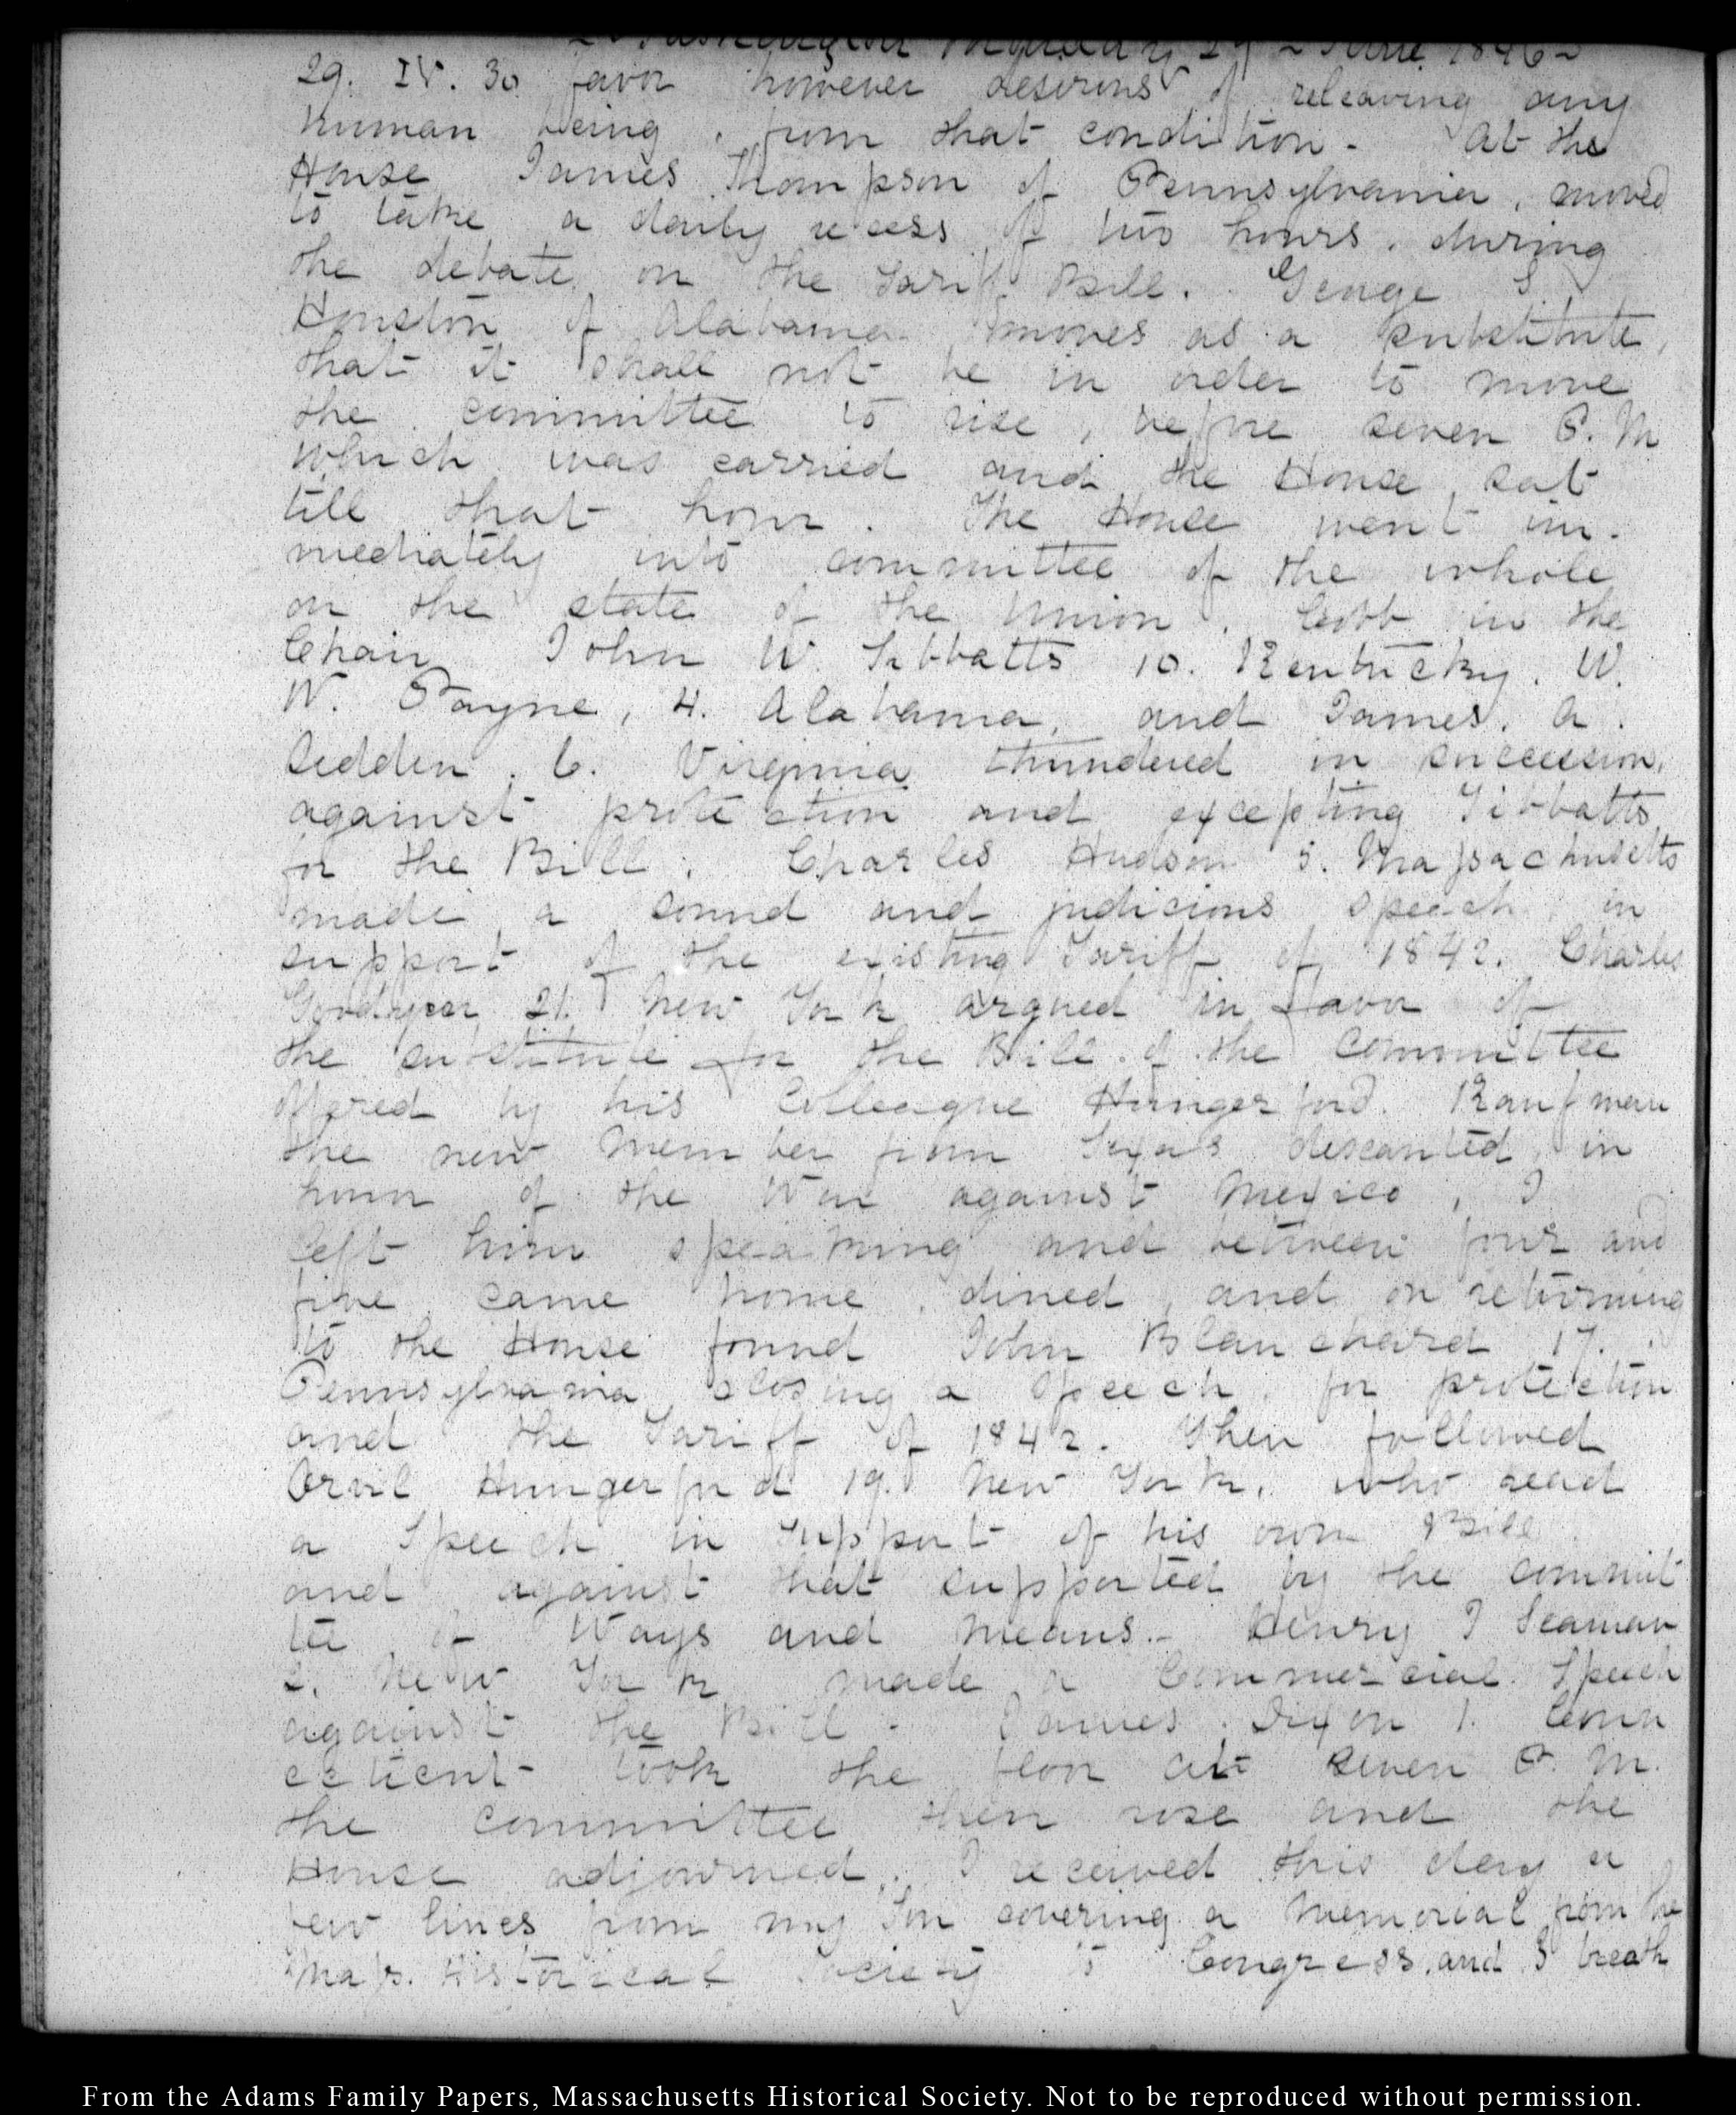 Washington Monday 29 June 1846
29. IV. 30 favor however desirous of releaving any
human being, from that condition - At the
House James Thompson of Pennsylvania, moved
to take a daily recess of two hours, during
the debate on the Tariff Bill. George S
Houston of Alabama moves as a substitute,
that it shall not be in order to move
the committee to rise, before seven P. M
which was carried and the House, sat
till that hour. The House went im-
mediately into committee of the whole
on the state of the Union. Cobb in the
Chair John W. Tibbatts 10. Kentucky. W.
W. Payne, 4. Alabama, and James. A.
Sedden. 6. Virginia thundered in succession,
against protection and excepting Tibbatts
for the Bill. Charles Hudson 5. Massachusetts
made a sound and judicious speech in
support of the existing Tariff of 1842. Charles
Goodyear 21. New York argued in favor of
the substitute for the Bill of the Committee
offered by his Colleague Hungerford. Kaufman
the new member from Texas descanted, in
honor of the War against Mexico, I
left him speaking and between four and
five came home, dined, and on returning
to the House found John Blanchard 17.
Pennsylvania closing a speech, for protection
and the Tariff of 1842. Then followed
Orvil Hungerford 19. New York, who read
a Speech in support of his own Bill
and against that supported by the commit
tee of Ways and Means.- Henry I Seaman
2. New York made a Commercial Speech
against the Bill - James Dixon 1. Conn
ecticut - took the floor at seven P. M.
the committee then rose and the
House adjourned. I received this day a
few lines from my Son covering a memorial from the
Mass. Historical Society to Congress, and I breath
From the Adams Family Papers, Massachusetts Historical Society. Not to be reproduced without permission.